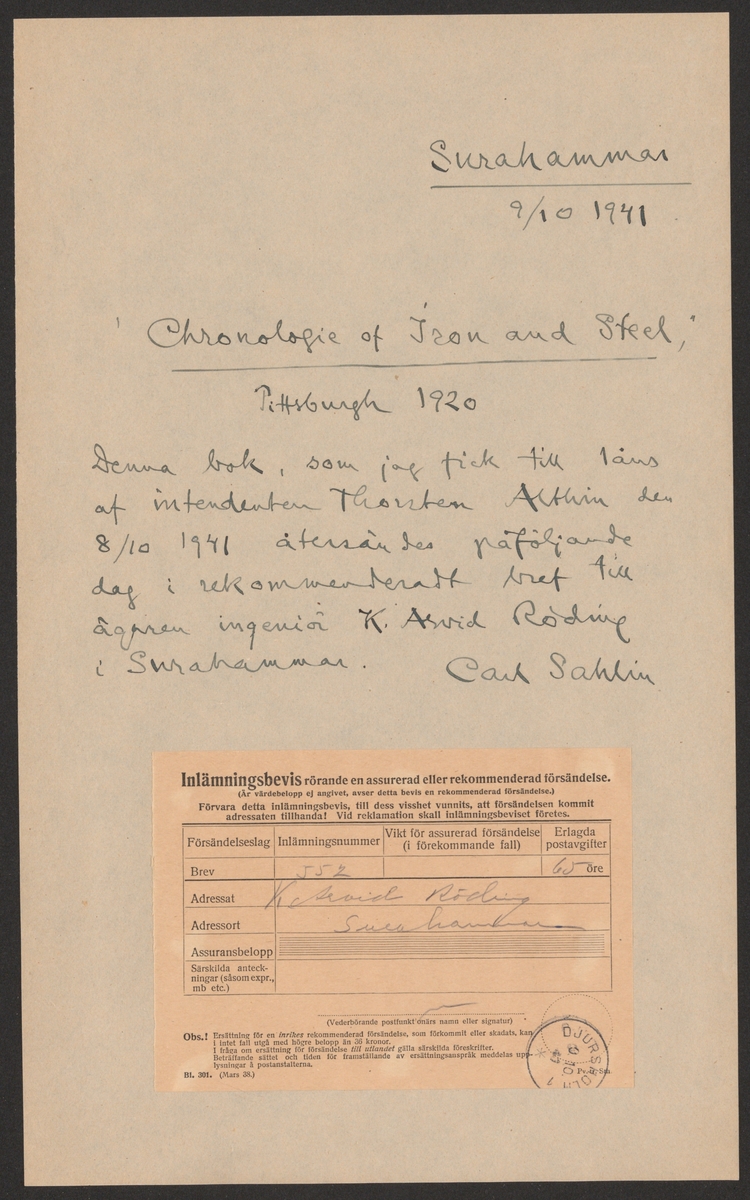 Surahammar
9/10 1941.
"Chronologie of Iron and Steel,"
Pittsburgh 1920
Denna bok, som jag fick till låns
af intendenten Thorsten Althin den
8/10 1941 återsändes påföljande
dag i rekommenderadt bref till
ägaren ingeniör K. Arvid Röding
i Surahammar. Carl Sahlin
Inlämningsbevis rörande en assurerad eller rekommenderad försändelse.
(Är värdebelopp ej angivet, avser detta bevis en rekommenderad försändelse.)
Förvara detta inlämningsbevis, till dess visshet vunnits, att försändelsen kommit
adressaten tillhanda! Vid reklamation skall inlämningsbeviset företes.
Försändelseslag Inlämningsnummer Vikt för assurerad försändelse (i förekommande fall) Erlagda postavgifter
Brev 552 65 öre
Adressat K Arvid Röding
Adressort Surahammar
Assuransbelopp
Särskilda anteck-
ningar (såsom expr.,
mb etc.)
(Vederbörande postfunktionärs namn eller signatur)
Obs.! Ersättning för en inrikes rekommenderad försändelse, som förkommit eller skadats, kan
i intet fall utgå med högre belopp än 36 kronor.
I fråga om ersättning för försändelse till utlandet gälla särskilda föreskrifter.
Beträffande sättet och tiden för framställande av ersättningsanspråk meddelas upp-
lysningar å postanstalterna.
Bl. 301. (Mars 38.)
DJURSHOLM 1